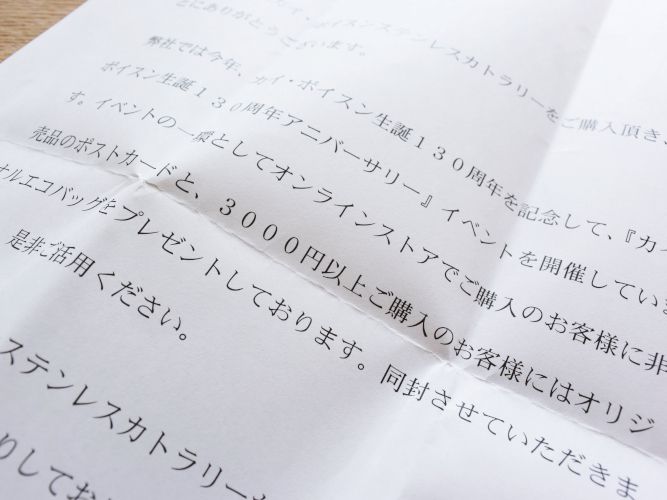 カイ・ボイスンステンレスカトラリーをご購入頂き、
とにありがとうございます。
弊社では今年、カイ・ボイスン生誕１３０周年を記念して、『カイ
ボイスン生誕１３０周年アニバーサリー』イベントを開催していま
す。イベントの一環としてオンラインストアでご購入のお客様に非
売品のポストカードと、３０００円以上ご購入のお客様にはオリジ
ナルエコバッグをプレゼントしております。同封させていただきま
是非ご活用ください。
ステンレスカトラリー
りしてお